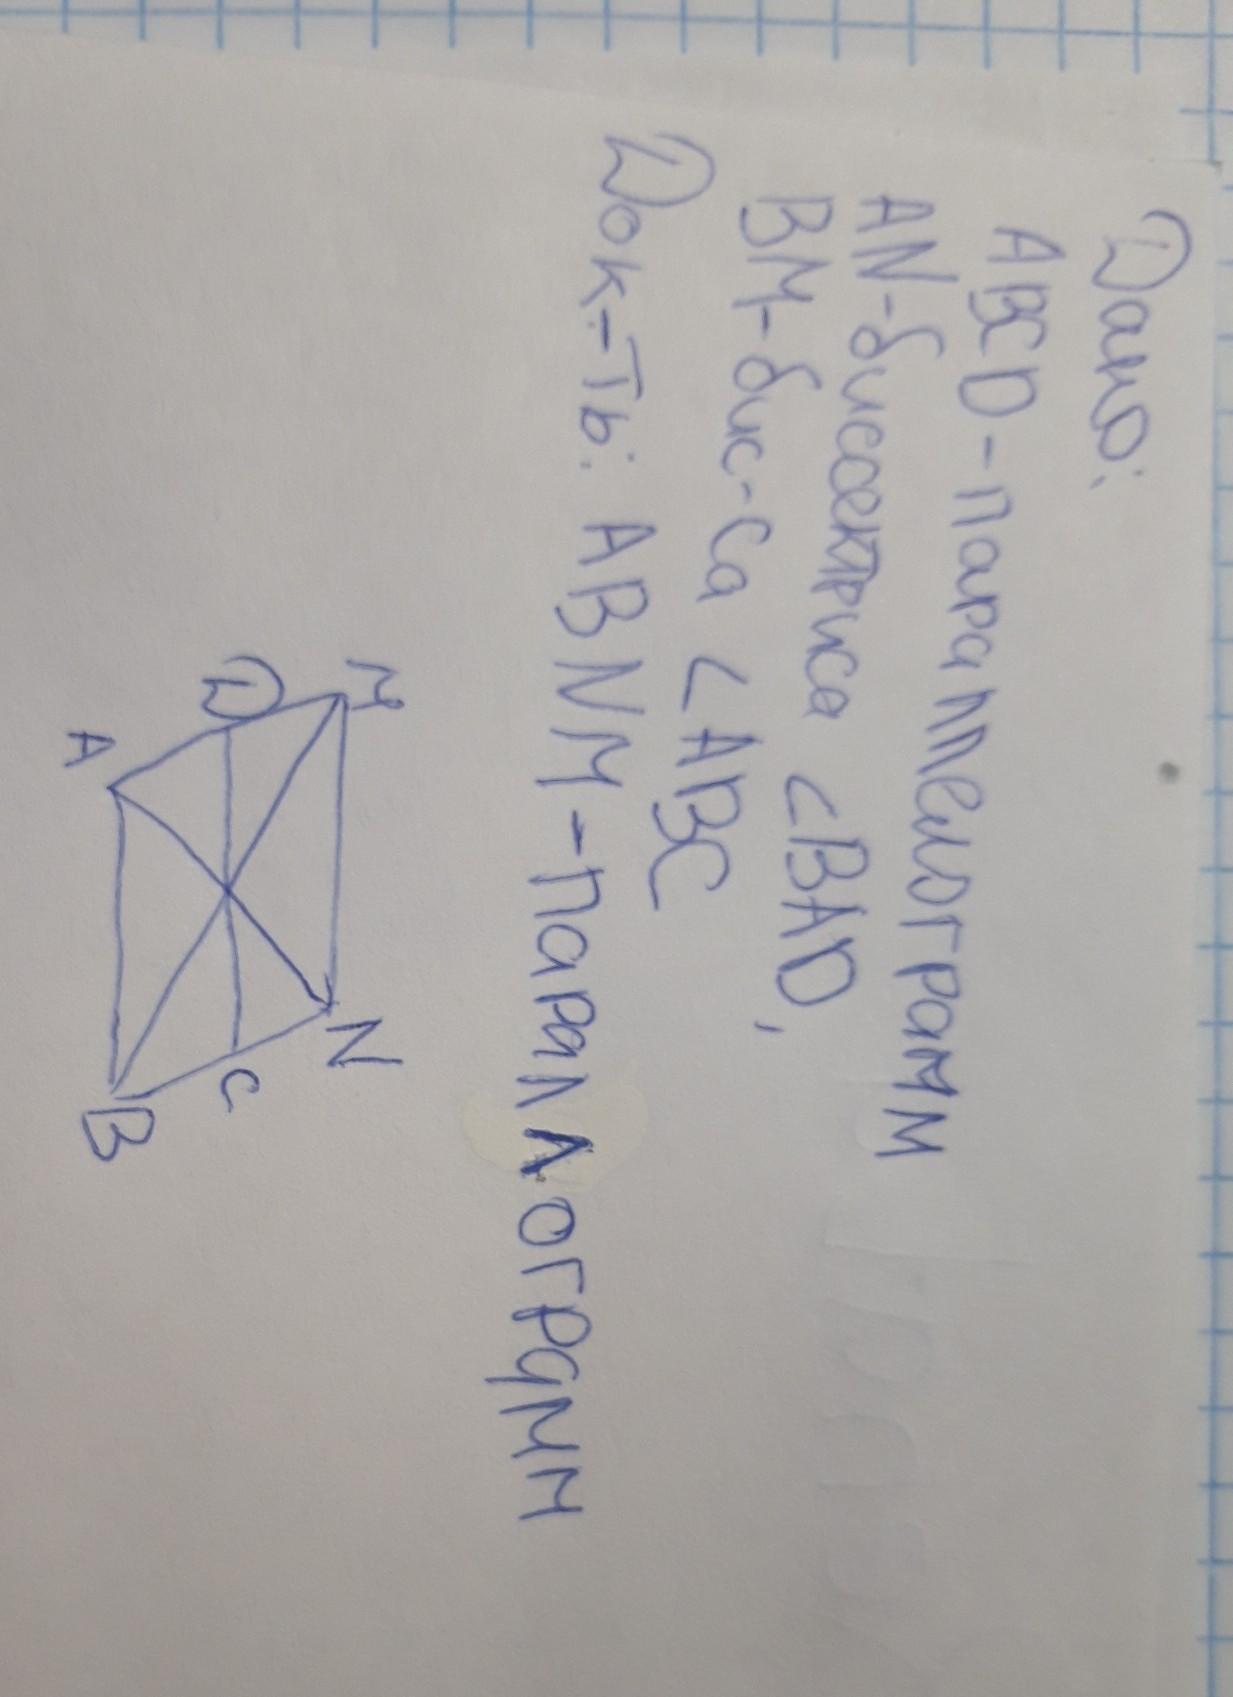 Дано:
ABCD-параллелограмм
AN-биссектриса ∠BAD,
BM-бис-са ∠ABC
Док-ть: ABNM-параллограмм
M
N
D
C
A
B